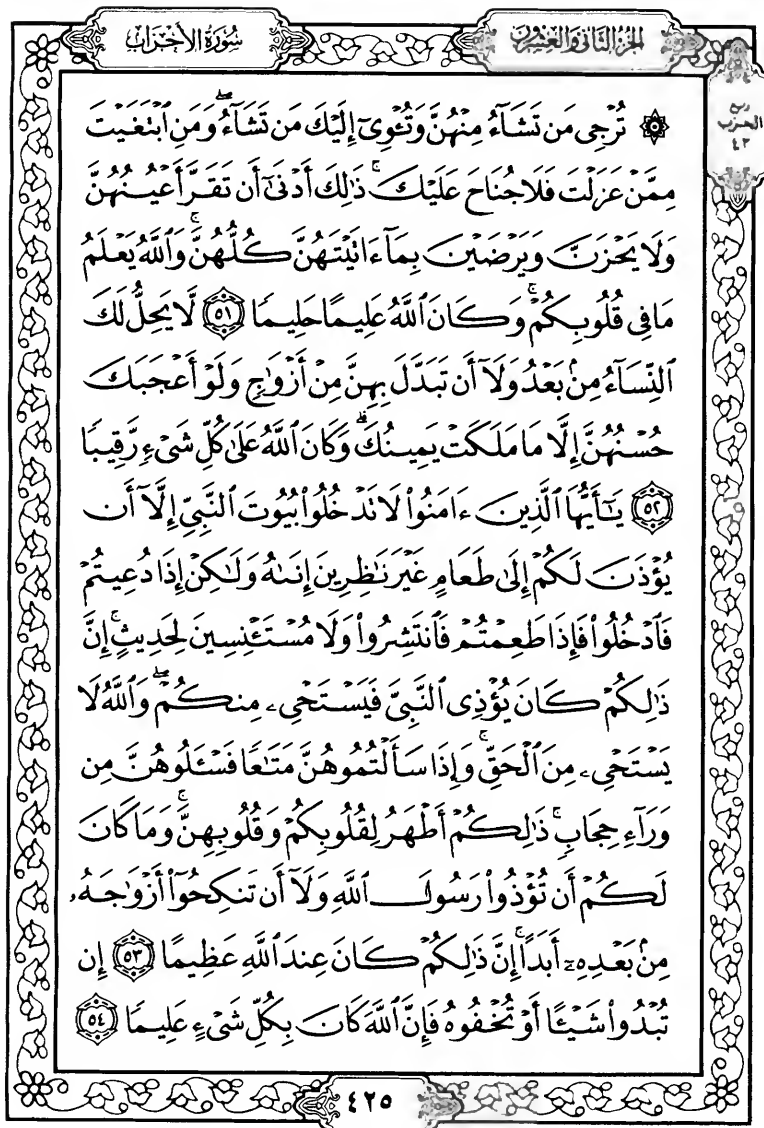 سُورَةُ الأَحْزَابِ
الجُزءُ الثَّانِي وَالعِشْرُونَ
ربع
الحزب
٤٣
۞ تُرْجِى مَن تَشَآءُ مِنْهُنَّ وَتُـْٔوِىٓ إِلَيْكَ مَن تَشَآءُ ۖ وَمَنِ ٱبْتَغَيْتَ
مِمَّنْ عَزَلْتَ فَلَا جُنَاحَ عَلَيْكَ ۚ ذَٰلِكَ أَدْنَىٰٓ أَن تَقَرَّ أَعْيُنُهُنَّ
وَلَا يَحْزَنَّ وَيَرْضَيْنَ بِمَآ ءَاتَيْتَهُنَّ كُلُّهُنَّ ۚ وَٱللَّهُ يَعْلَمُ
مَا فِى قُلُوبِكُمْ ۚ وَكَانَ ٱللَّهُ عَلِيمًا حَلِيمًا ٥١ لَّا يَحِلُّ لَكَ
ٱلنِّسَآءُ مِنۢ بَعْدُ وَلَآ أَن تَبَدَّلَ بِهِنَّ مِنْ أَزْوَٰجٍ وَلَوْ أَعْجَبَكَ
حُسْنُهُنَّ إِلَّا مَا مَلَكَتْ يَمِينُكَ ۗ وَكَانَ ٱللَّهُ عَلَىٰ كُلِّ شَىْءٍ رَّقِيبًا
٥٢ يَٰٓأَيُّهَا ٱلَّذِينَ ءَامَنُوا۟ لَا تَدْخُلُوا۟ بُيُوتَ ٱلنَّبِىِّ إِلَّآ أَن
يُؤْذَنَ لَكُمْ إِلَىٰ طَعَامٍ غَيْرَ نَٰظِرِينَ إِنَىٰهُ وَلَٰكِنْ إِذَا دُعِيتُمْ
فَٱدْخُلُوا۟ فَإِذَا طَعِمْتُمْ فَٱنتَشِرُوا۟ وَلَا مُسْتَـْٔنِسِينَ لِحَدِيثٍ ۚ إِنَّ
ذَٰلِكُمْ كَانَ يُؤْذِى ٱلنَّبِىَّ فَيَسْتَحْىِۦ مِنكُمْ ۖ وَٱللَّهُ لَا
يَسْتَحْىِۦ مِنَ ٱلْحَقِّ ۚ وَإِذَا سَأَلْتُمُوهُنَّ مَتَٰعًا فَسْـَٔلُوهُنَّ مِن
وَرَآءِ حِجَابٍ ۚ ذَٰلِكُمْ أَطْهَرُ لِقُلُوبِكُمْ وَقُلُوبِهِنَّ ۚ وَمَا كَانَ
لَكُمْ أَن تُؤْذُوا۟ رَسُولَ ٱللَّهِ وَلَآ أَن تَنكِحُوٓا۟ أَزْوَٰجَهُۥ
مِنۢ بَعْدِهِۦٓ أَبَدًا ۚ إِنَّ ذَٰلِكُمْ كَانَ عِندَ ٱللَّهِ عَظِيمًا ٥٣ إِن
تُبْدُوا۟ شَيْـًٔا أَوْ تُخْفُوهُ فَإِنَّ ٱللَّهَ كَانَ بِكُلِّ شَىْءٍ عَلِيمًا ٥٤
٤٢٥